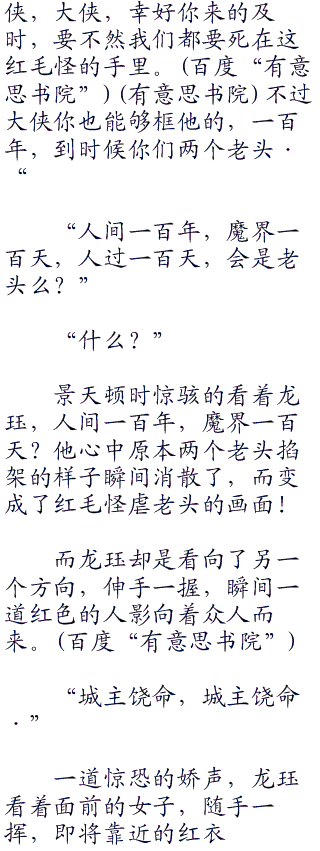 侠，大侠，幸好你来的及
时，要不然我们都要死在这
红毛怪的手里。(百度“有意
思书院”)(有意思书院)不过
大侠你也能够框他的，一百
年，到时候你们两个老头·
“
“人间一百年，魔界一
百天，人过一百天，会是老
头么？”
“什么？”
景天顿时惊骇的看着龙
珏，人间一百年，魔界一百
天？他心中原本两个老头掐
架的样子瞬间消散了，而变
成了红毛怪虐老头的画面！
而龙珏却是看向了另一
个方向，伸手一握，瞬间一
道红色的人影向着众人而
来。(百度“有意思书院”)
“城主饶命，城主饶命
·”
一道惊恐的娇声，龙珏
看着面前的女子，随手一
挥，即将靠近的红衣